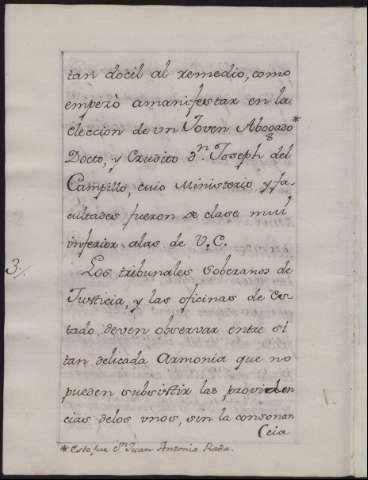 tan docil al remedio, como
empezò amanifestar en la
eleccion de vn Joven Abogado*
Docto, y Erudito Dn. Joseph del
Campillo, cuio Ministerio y fa
cultades fueron de clase mui
inferior alas de V.C.
3//
Los tribunales Soberanos de
Justicia, y las oficinas de es
tado deven observar entre sí
tan delicada Armonia que no
pueden subsistir las providen
cias delos vnos, sin la consonan
Ceia
* Esto, fue Dn. Juan Antonio Rada.